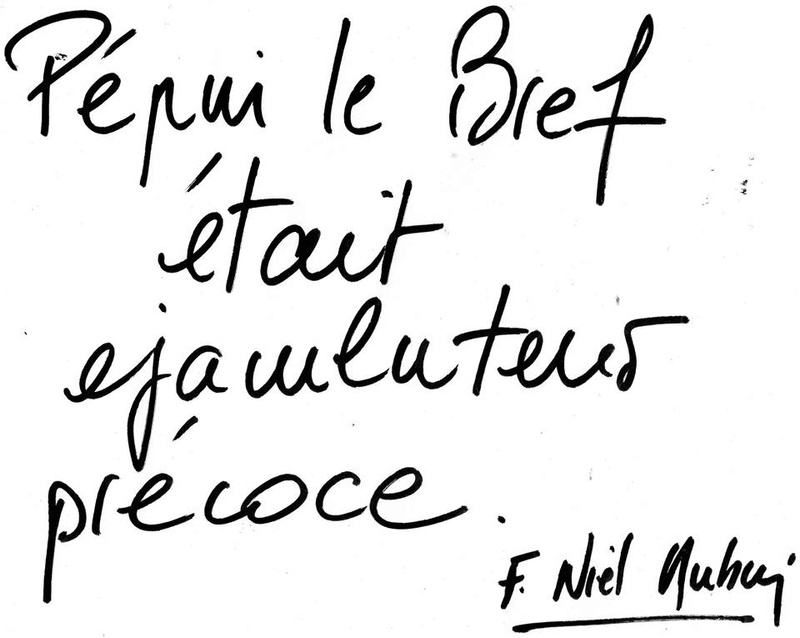 Pépin le Bref
était
ejaculateur
précoce.
F. Niel